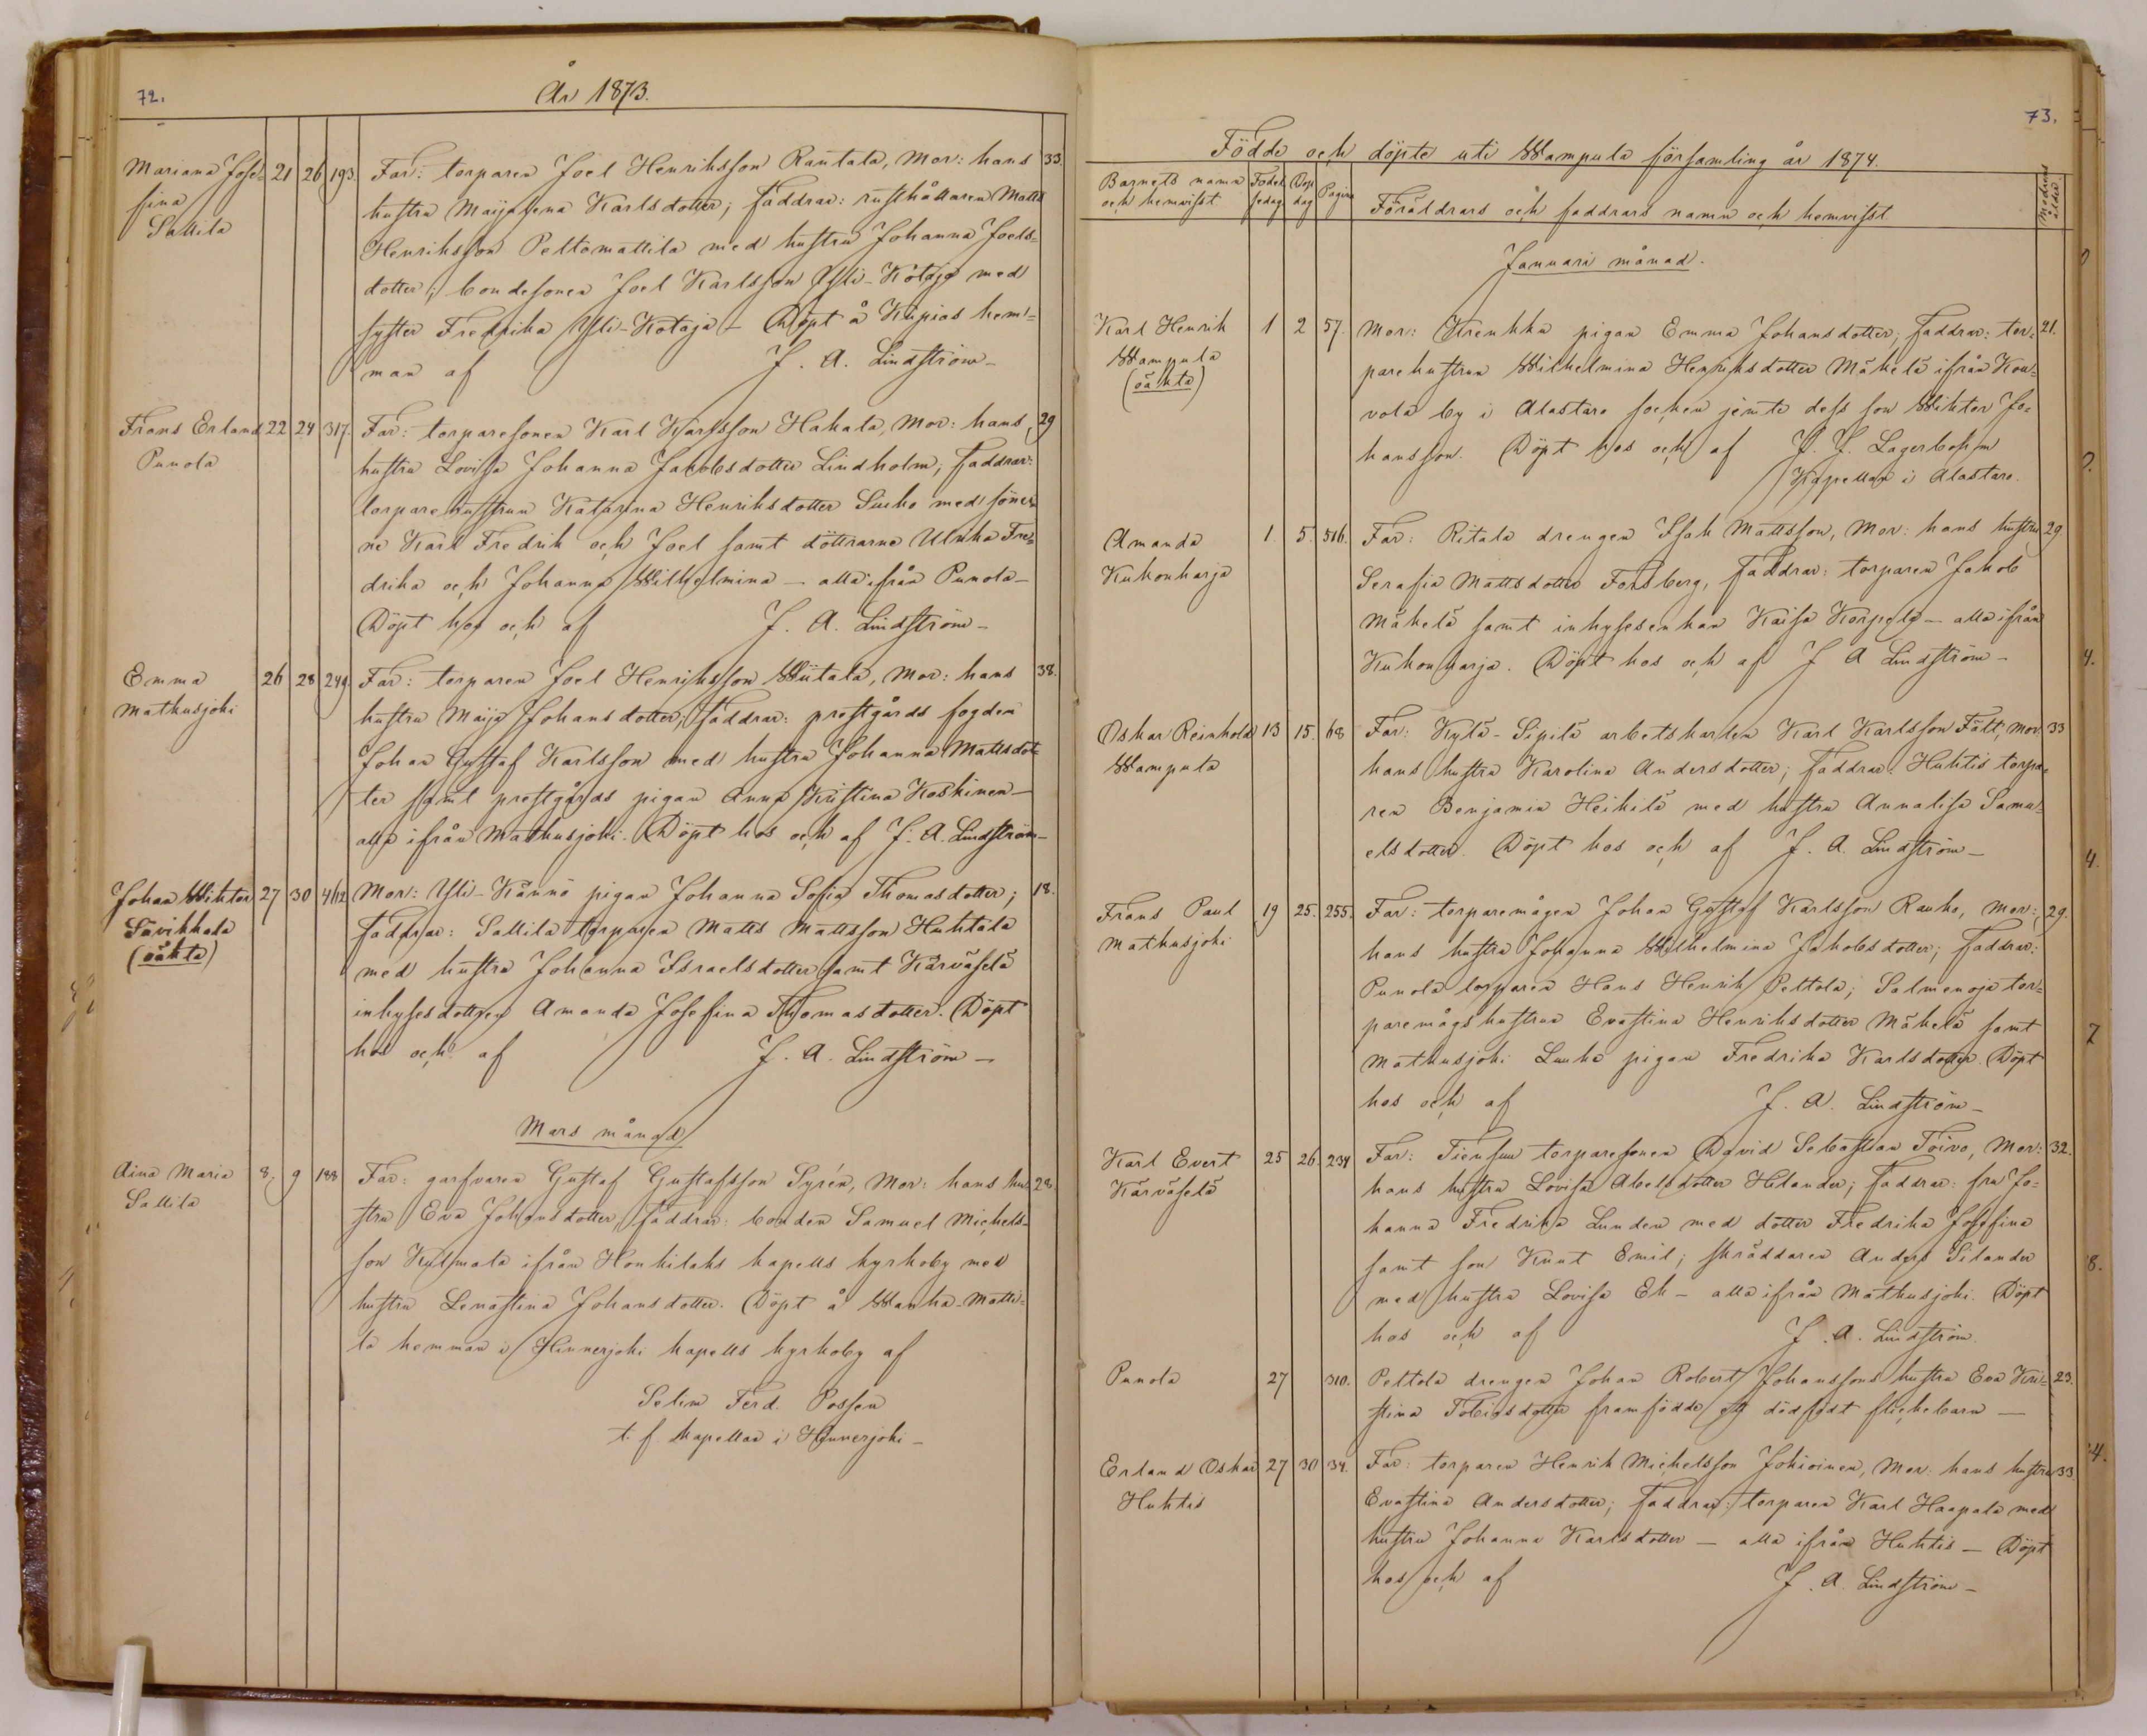 72.
År 1873.
Mariana Jose=
fina
Sallila
21 26 193.
Far: torparen Joel Henriksson Rautala, Mor: hans 33.
hustru Maijastina Karlsdotter; Faddrar: rusthållaren Matts
Henriksson Peltomattila med hustru Johanna Joels=
dotter; bondesonen Joel Karlsson Yli-Kotaja med
syster Fredrika Yli-Kotaja - Döpt å Kupias hem=
man af J. A. Lindström -
Frans Erland 22 24 317.
Punola
Far: torparesonen Karl Karlsson Hakala, Mor: hans 29
hustru Lovisa Johanna Jakobsdotter Lindholm; Faddrar:
torparehustrun Katarina Henriksdotter Sucko med söner=
ne Karl Fredrik och Joel samt döttrarne Ulrika Fre=
drika och Johanna Wilhelmina - alla ifrån Punola -
Döpt hos och af J. A. Lindström -
Emma 26 28 249.
Mathusjoki
Far: torparen Joel Henriksson Wiitala, Mor: hans 38.
hustru Maija Johansdotter; Faddrar: prestgårds fogden
Johan Gustaf Karlsson med hustru Johanna Mattsdot=
ter samt prestgårds pigan Anna Kristina Koskinen -
alla ifrån Mathusjoki. Döpt hos och af J. A. Lindström -
Johan Wiktor 27 30 412
Sävikkala
(oäkta)
Mor: Yli-Kännö pigan Johanna Sofia Thomasdotter; 18.
Faddrar: Sallila torparen Matts Mattsson Huhtala
med hustru Johanna Israelsdotter samt Kärväselä
inhysesdottren Amanda Josefina Thomasdotter. Döpt
hos och af J. A. Lindström -
Mars månad
Aina Maria 8. 9 188
Sallila
Far: garfvaren Gustaf Gustafsson Syrén, Mor: hans hu= 28.
stru Eva Johansdotter, Faddrar: bonden Samuel Michels=
son Kylmälä ifrån Honkilahs kapells kyrkoby med
hustru Lenastina Johansdotter. Döpt å Wanha-Matti=
la hemman i Hinnerjoki kapells kyrkoby af
Selim Ferd. Possen
t. f. Kapellan i Hinnerjoki -
73.
Födde och döpte uti Wampula församling år 1874.
Barnets namn
och hemvist.
Födel=
sedag
Dop
dag
Pagina
Föräldrars och faddrars namn och hemvist
Modrens
ålder
Januari månad.
Karl Henrik 1 2 57.
Wampula
(oäkta)
Mor: Krenkka pigan Emma Johansdotter; Faddrar: tor= 21.
parehustrun Wilhelmina Henriksdotter Mäkelä ifrån Kou=
vola by i Alastaro socken jemte dess son Wiktor Jo=
hansson. Döpt hos och af J. J. Lagerbohm
Kapellan i Alastaro.
Amanda 1. 5. 516.
Kukonharja
Far: Ritala drengen Isak Mattsson, Mor: hans hustru 29.
Serafia Mattsdotter Forsberg, Faddrar: torparen Jakob
Mäkelä samt inhysesenkan Kaisa Korpela - alla ifrån
Kukonharja. Döpt hos och af J A Lindström -
Oskar Reinhold 13 15. 68
Wampula
Far: Kylä-Sipilä arbetskarlen Karl Karlsson Fält, Mor: 33
hans hustru Karolina Andersdotter; Faddrar: Huhtis torpa=
ren Benjamin Heikilä med hustru Annalisa Samu=
elsdotter. Döpt hos och af J. A. Lindström -
Frans Paul 19 25. 255.
Mathusjoki
Far: torparemågen Johan Gustaf Karlsson Rauko, Mor: 29.
hans hustru Johanna Wilhelmina Jakobsdotter; Faddrar:
Punola torparen Hans Henrik Peltola; Salmenoja tor=
paremågshustrun Evastina Henriksdotter Mäkelä samt
Mathusjoki Lauko pigan Fredrika Karlsdotter. Döpt
hos och af J. A. Lindström -
Karl Evert 25 26. 234
Kärväselä
Far: Tiensuu torparesonen David Sebastian Toivo, Mor: 32.
hans hustru Lovisa Abelsdotter Helander; Faddrar: fru Jo=
hanna Fredrika Lunden med dotter Fredrika Josefina
samt son Knut Emil; skräddaren Anders Silander
med hustru Lovisa Ek - alla ifrån Mathusjoki. Döpt
hos och af J. A. Lindström.
Punola 27 310.
Peltola drengen Johan Robert Johanssons hustru Eva Kri= 23.
stina Tobiasdotter framfödde ett dödfödt flickebarn -
Erland Oskar 27 30 34.
Huhtis
Far: torparen Henrik Michelsson Johioinen, Mor: hans hustru 33.
Evastina Andersdotter; Faddrar: torparen Karl Haapala med
hustru Johanna Karlsdotter - alla ifrån Huhtis - Döpt
hos och af J. A. Lindström -